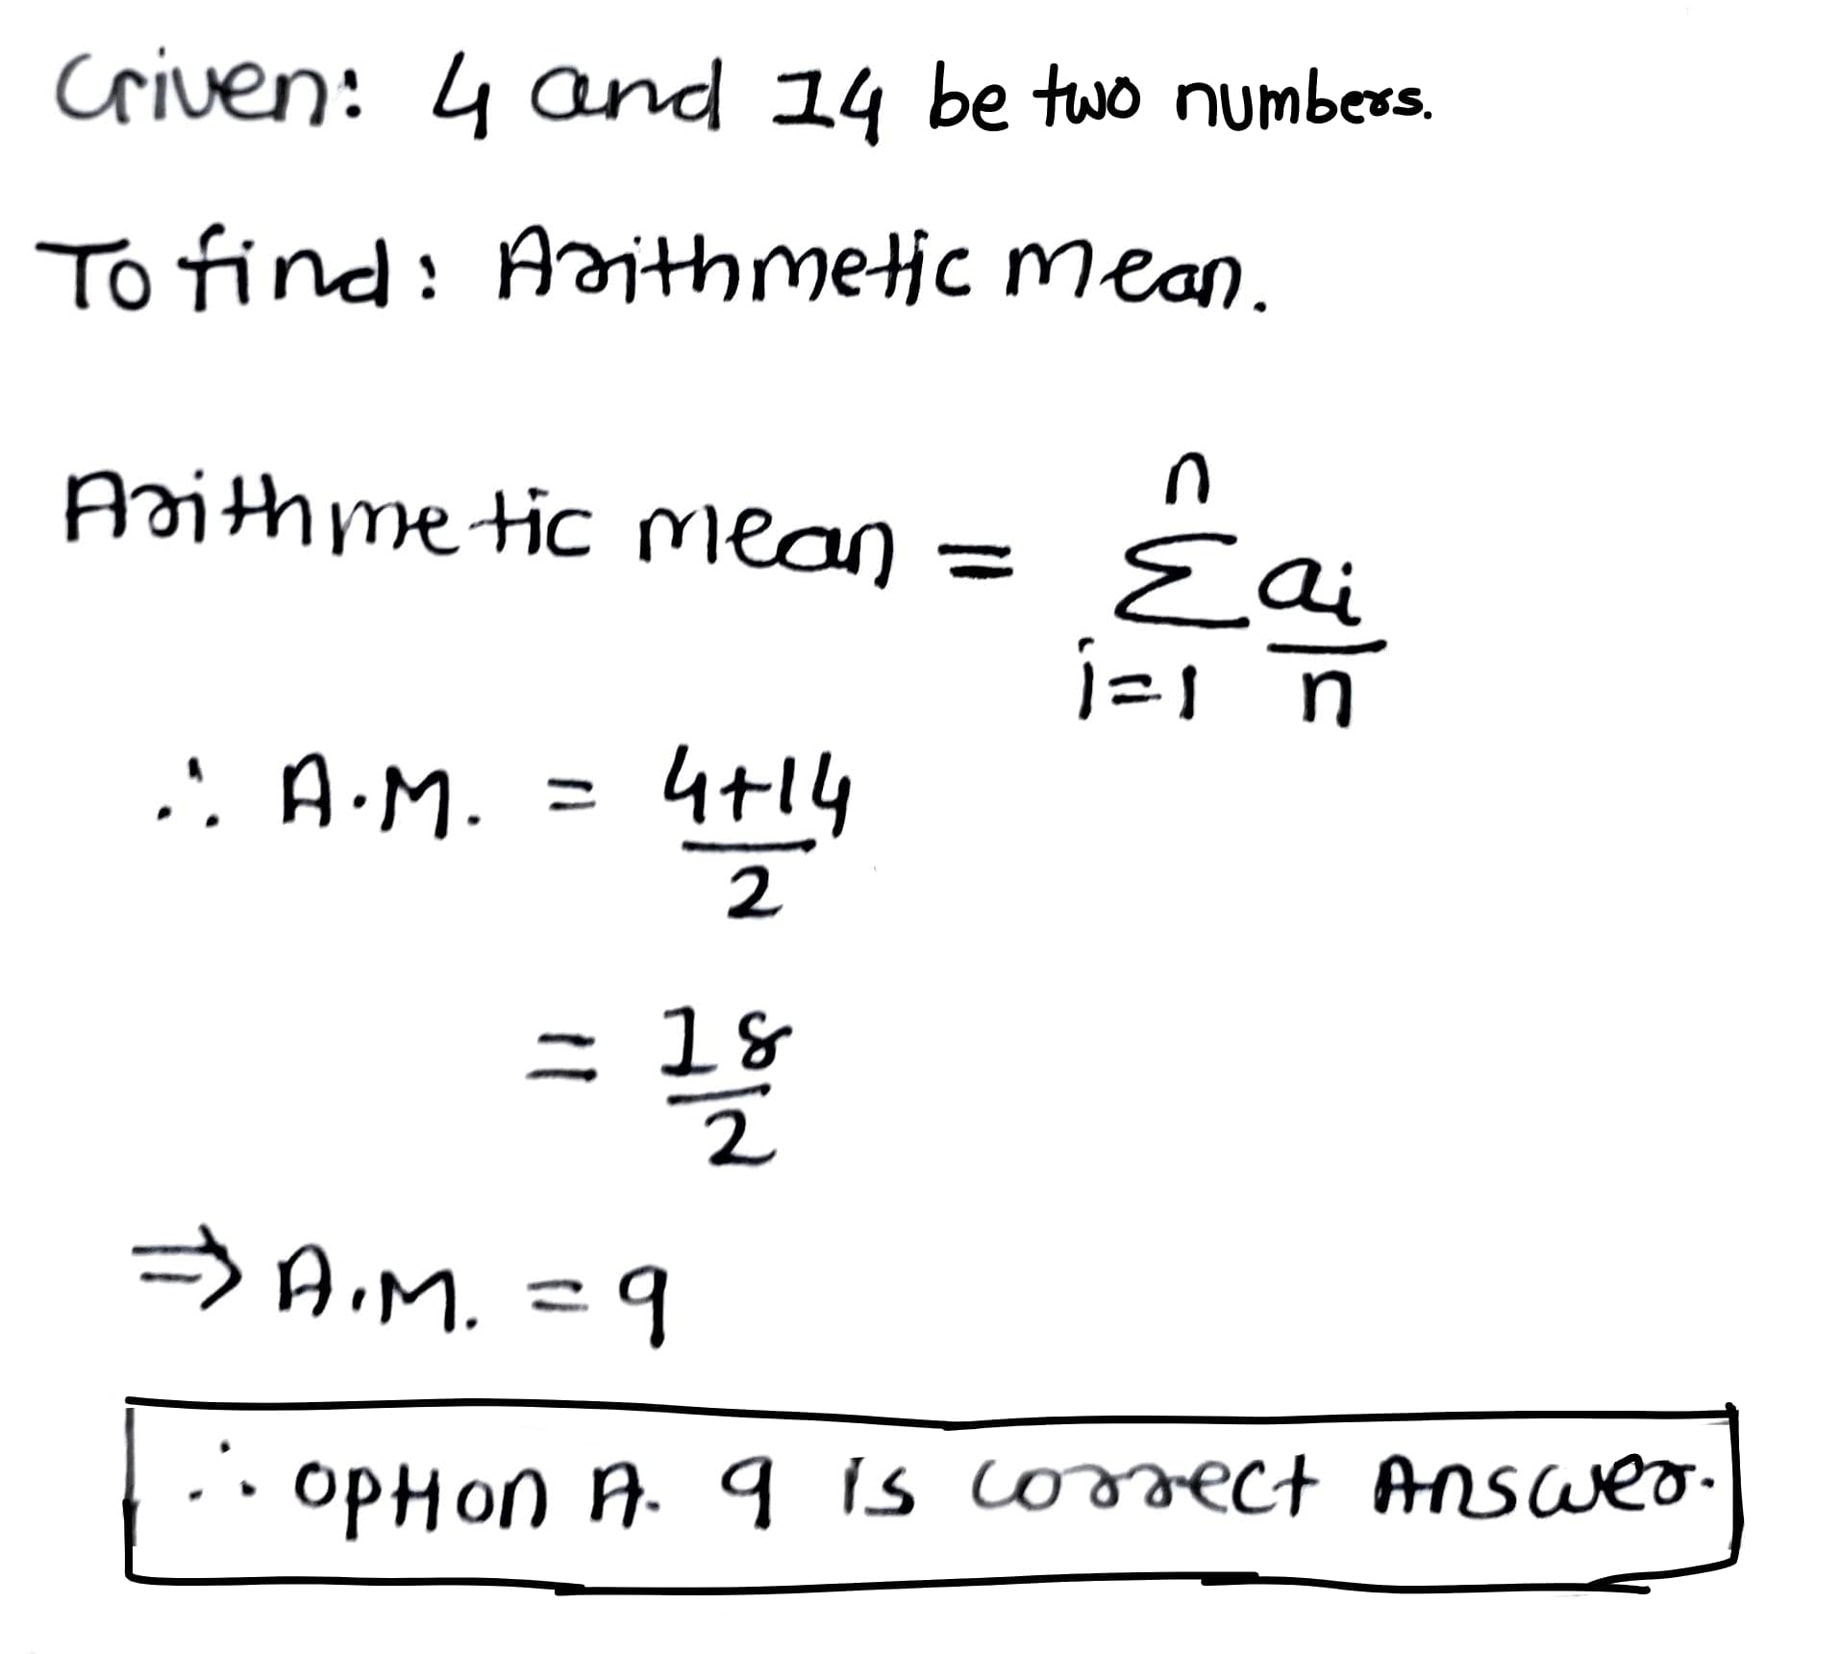 Given: 4 and 14 be two numbers.
To find: Arithmetic mean.
Arithmetic mean = n Σ i=1 ai/n
∴ A.M. = 4+14/2
= 18/2
⇒ A.M. = 9
∴ option A. 9 is correct Answer.